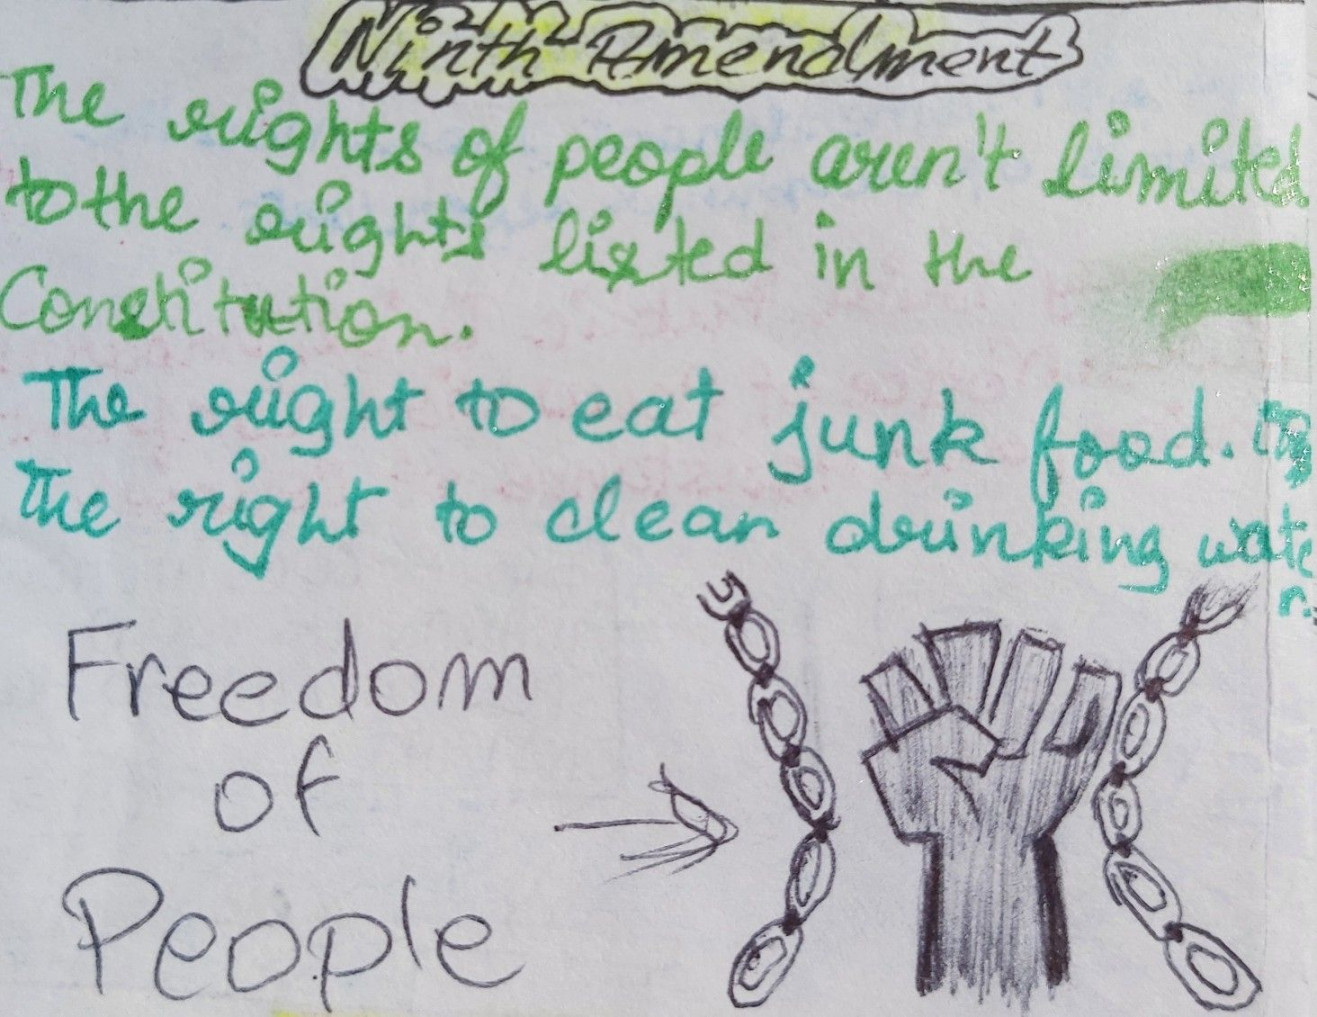 Ninth Amendment
The rights of people aren't limited
to the rights listed in the
Constitution.
The right to eat junk food.
The right to clean drinking wate
r.
Freedom
of
People